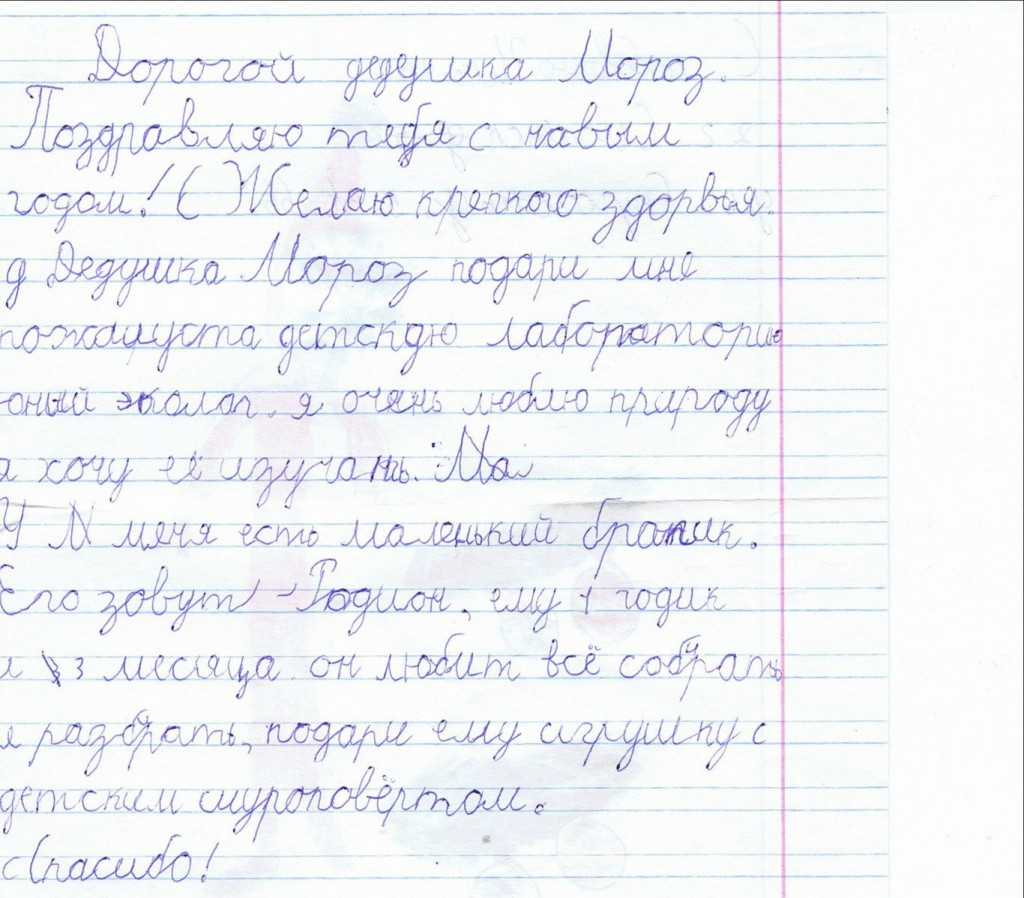 Дорогой дедушка Мороз.
Поздравляю тебя с навым
годом! ( Желаю крепкого здорвья.
д Дедушка Мороз подари мне
пожалуста детскую лабораторию
юный эколог. я очень люблю природу
я хочу её изучать. Ма
У М меня есть маленький братик.
Его зовут - Родион, ему 1 годик
и 3 месяца он любит всё собрать
и разбрать, подари ему игрушку с
детским шуроповёртом.
с Спасибо!